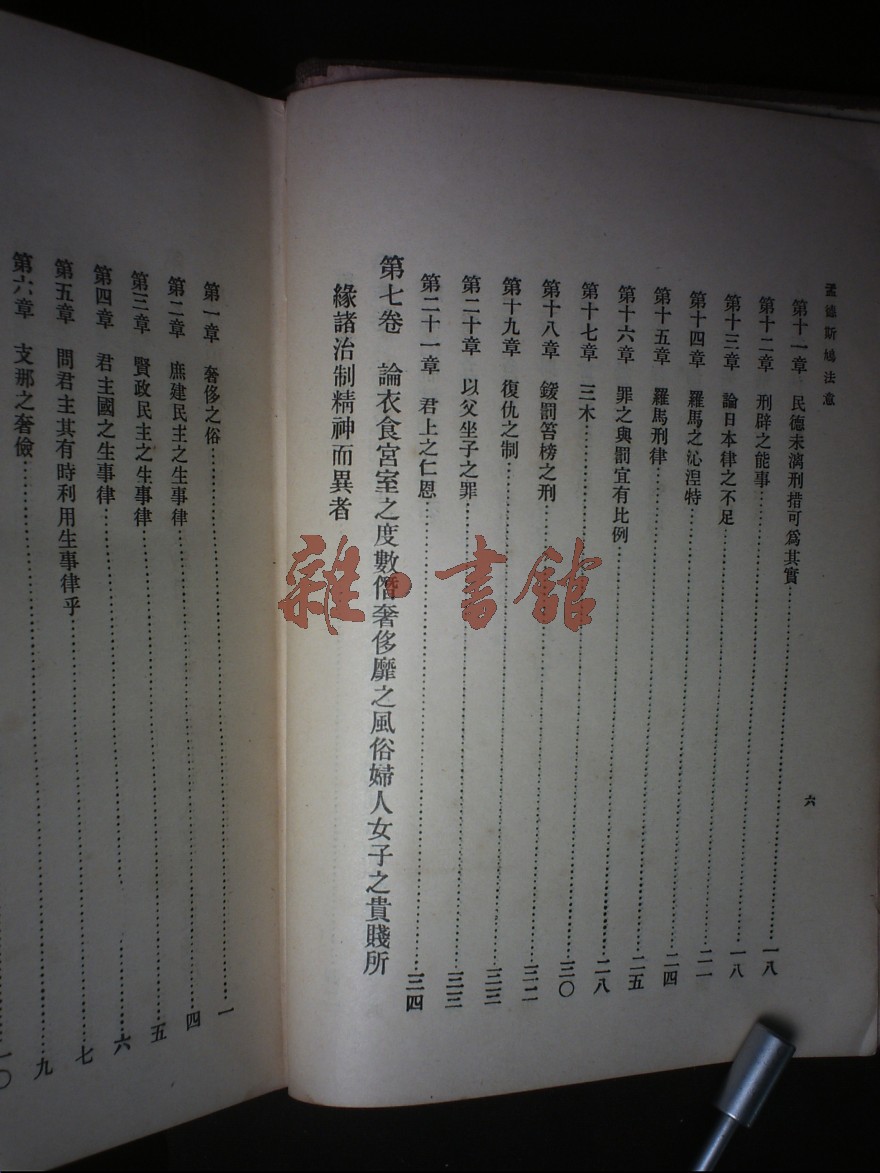 孟德斯鳩法意
六
第十一章 民德未漓刑措可爲其實……一八
第十二章 刑辟之能事……一八
第十三章 論日本律之不足……二一
第十四章 羅馬之沁涅特……二四
第十五章 羅馬刑律……二五
第十六章 罪之與罰宜有比例……二八
第十七章 三木……三〇
第十八章 鍰罰笞榜之刑……三二
第十九章 復仇之制……三三
第二十章 以父坐子之罪……三三
第二十一章 君上之仁恩……三四
第七卷 論衣食宮室之度數僭奢侈靡之風俗婦人女子之貴賤所
緣諸治制精神而異者
第一章 奢侈之俗……一
第二章 庶建民主之生事律……四
第三章 賢政民主之生事律……五
第四章 君主國之生事律……六
第五章 問君主其有時利用生事律乎……七
第六章 支那之奢儉……九
一〇
雜·書館